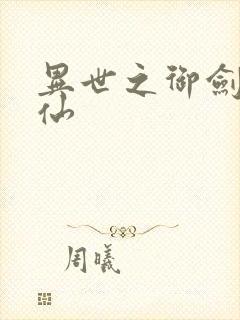 異世之御劍
仙
周曦